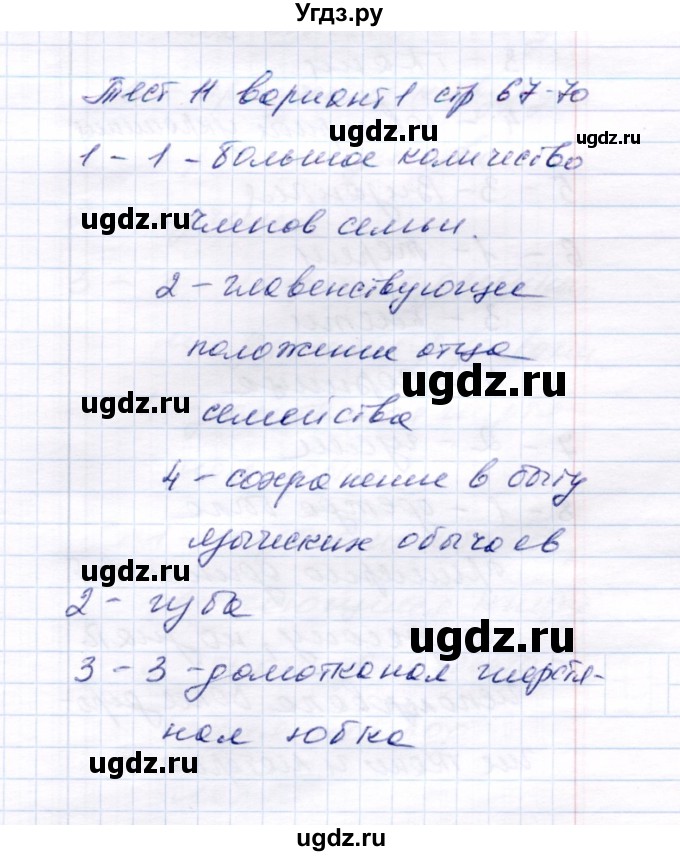 Угдз.ру
Тест 11 вариант 1 стр 67-70
1 - 1 - большое количество
ugdz.ru членов семьи.
2 - главенствующее
положение отца
ugdz.ru
ugdz.ru семейства
4 - сохранение в быту
языческих обычаев
ugdz.ru
2 - губа
ugdz.ru
3 - 3 - домотканая шерстя-
ная юбка
ugdz.ru
ugdz.ru